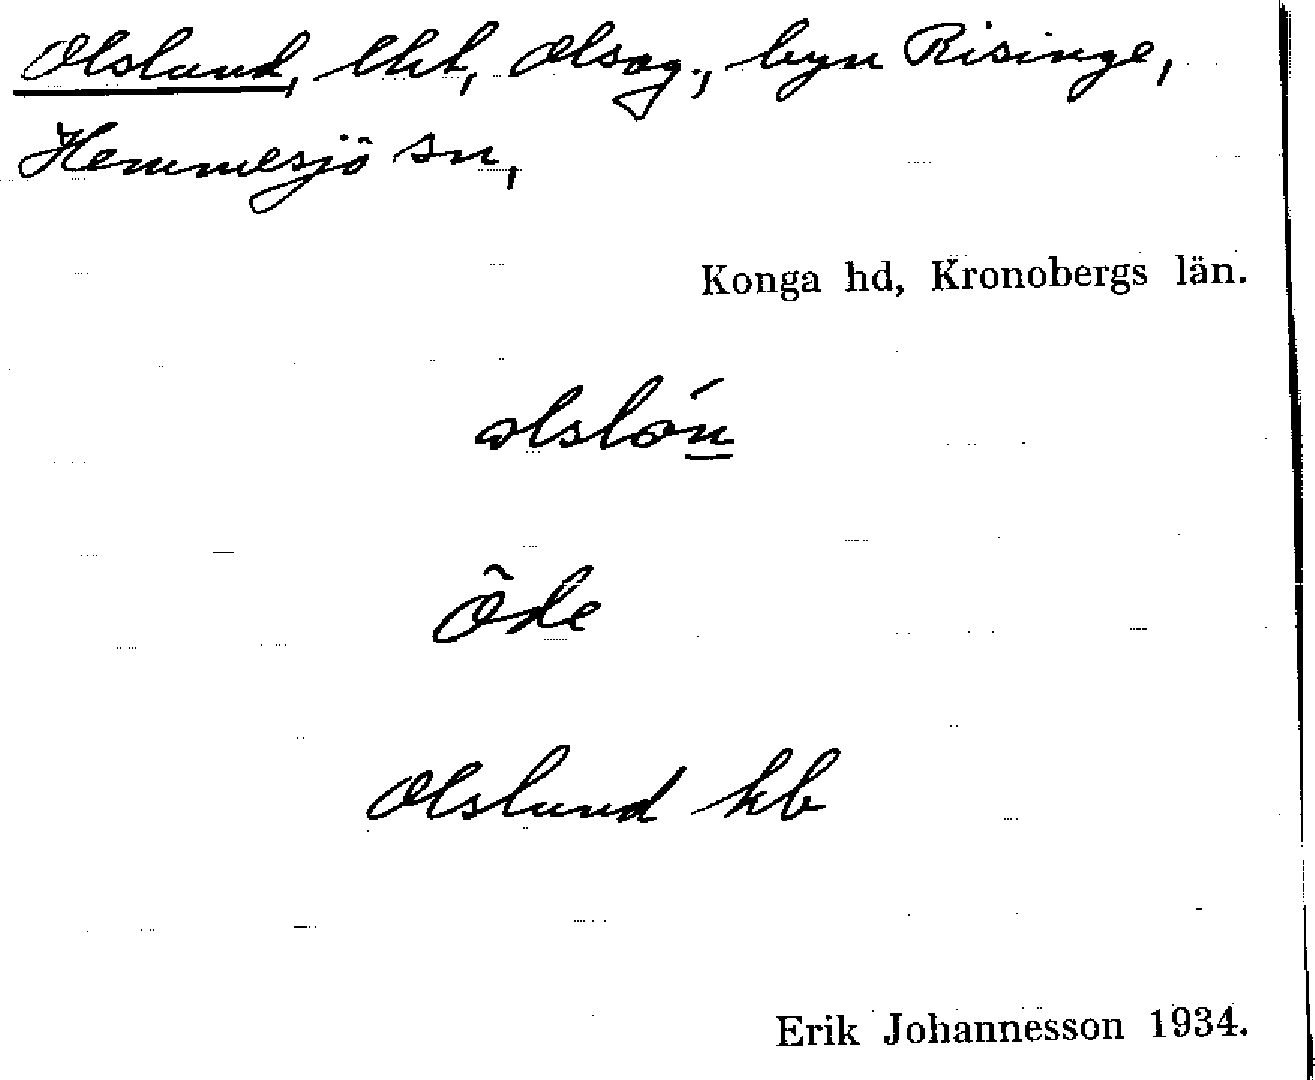 Olslund, lht, Olsag., byn Risinge,
Hemmesjö sn,
Konga hd, Kronobergs län.
olslón
Öde
Olslund kb
Erik Johannesson 1934.